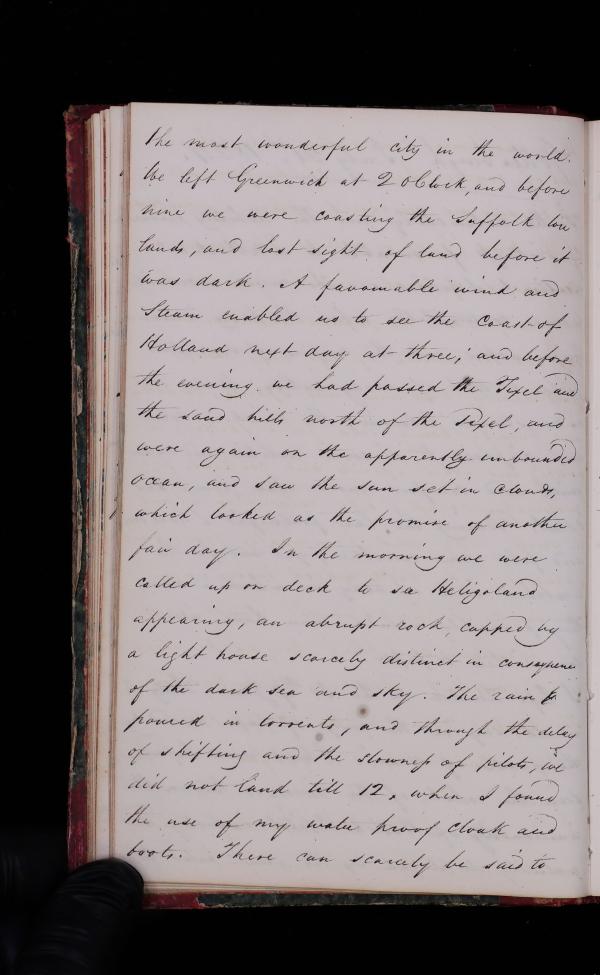 the most wonderful city in the world.
We left Greenwich at 2 oClock, and before
nine we were coasting the Suffolk low
lands, and lost sight of land before it
was dark. A favourable wind and
Steam enabled us to see the Coast of
Holland next day at three; and before
the evening we had passed the Texel and
the sand hills north of the Texel, and
were again on the apparently unbounded
ocean, and saw the sun set in clouds,
which looked as the promise of another
fair day. In the morning we were
called up on deck to see Heligoland
appearing, an abrupt rock, capped by
a light house scarcely distinct in consequence
of the dark sea and sky. The rain
poured in torrents, and through the delay
of shifting and the slowness of pilots, we
did not land till 12, when I found
the use of my water proof cloak and
boots. There can scarcely be said to